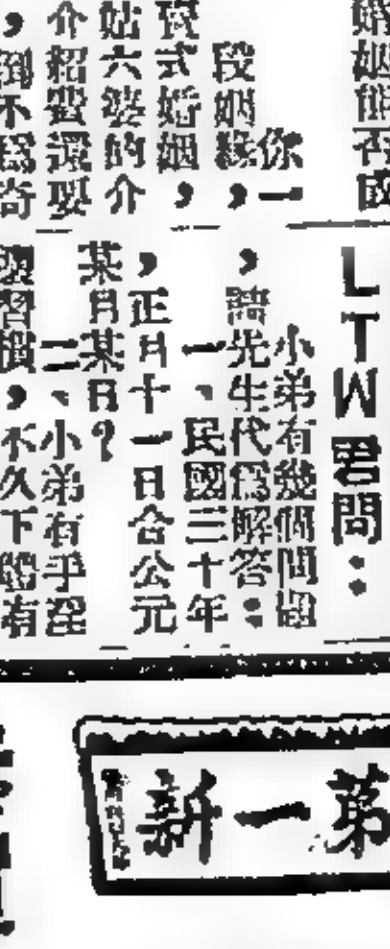 你一
段姻緣，
賣式婚姻，
姑六婆的介
介紹螢還娶
，倒不爲奇
LTW君問：
小弟有幾個問題
，請先生代爲解答：
一、民國三十年
，正月十一日合公元
某月某日？
二、小弟有手淫
習慣，不久下體有
第一新